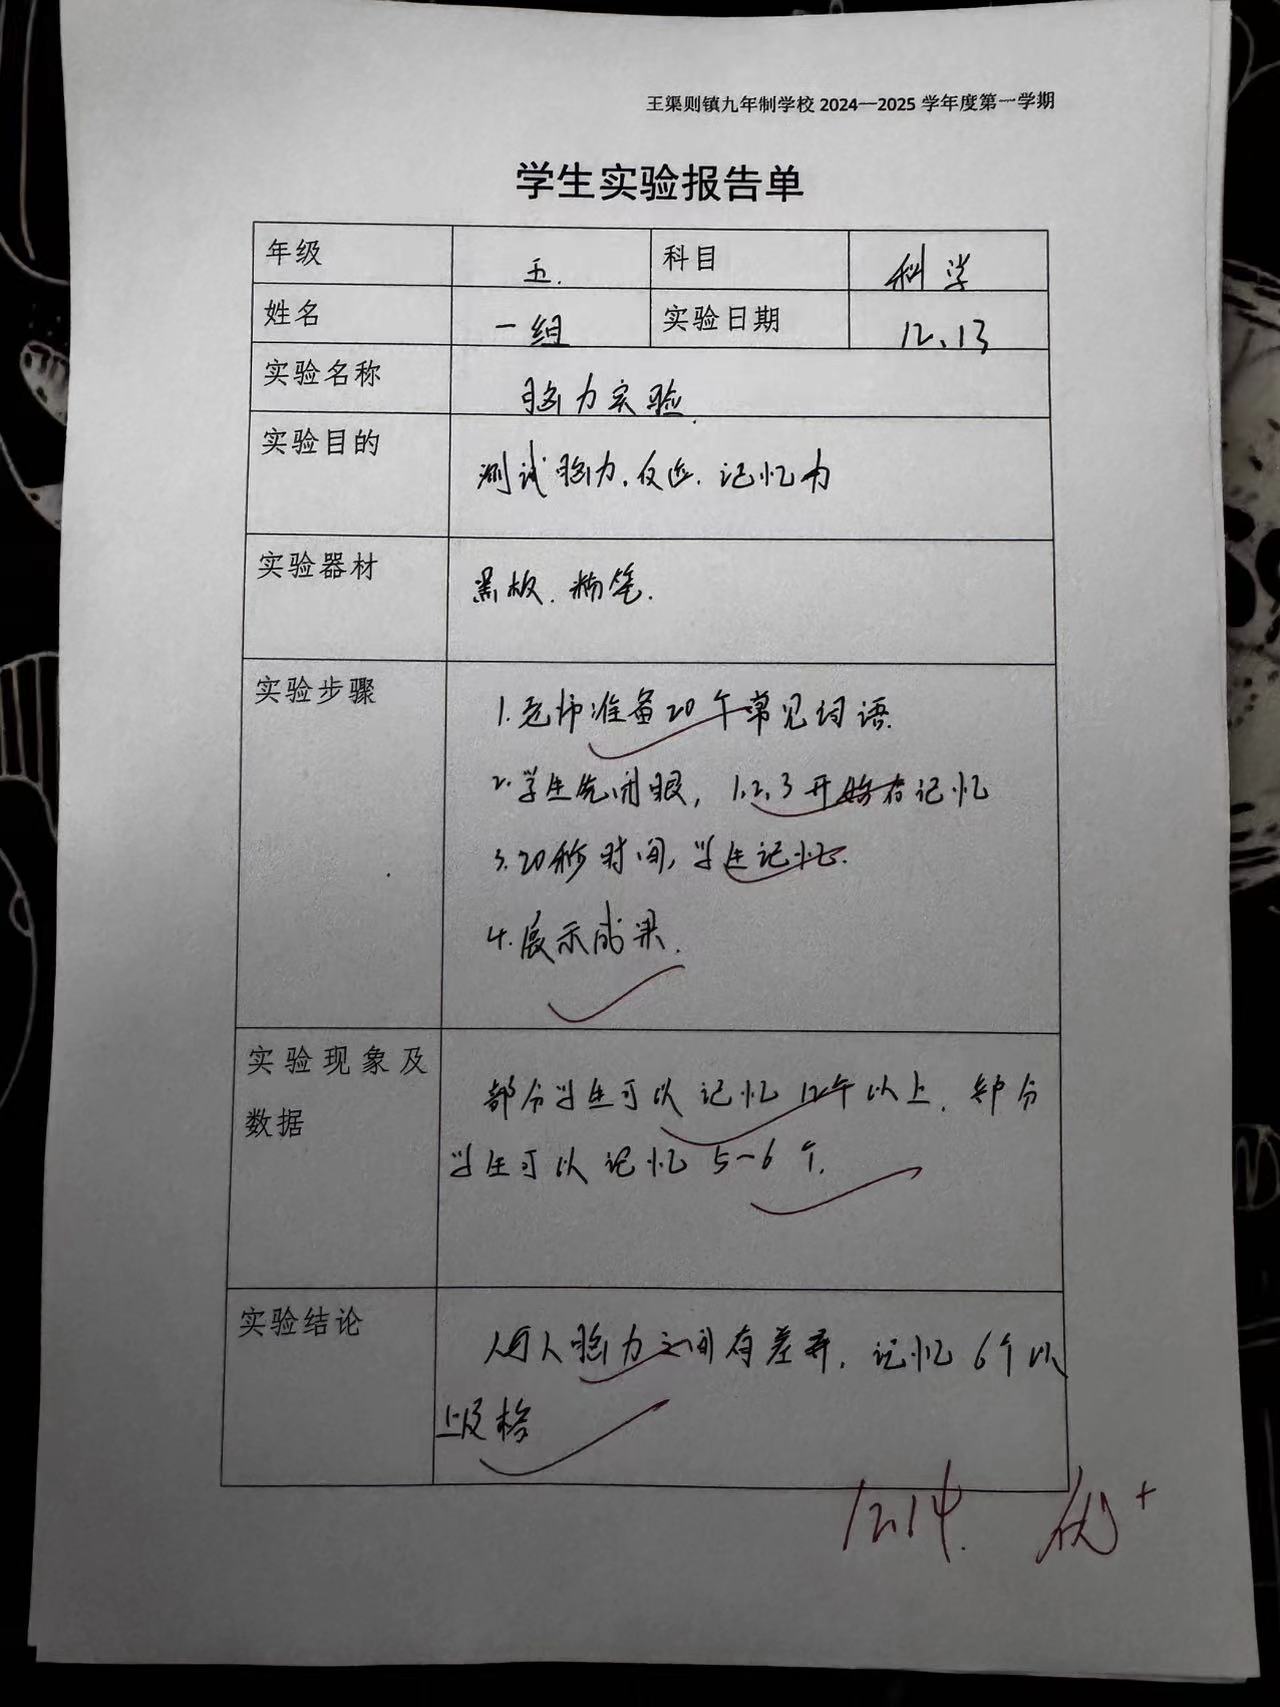 王渠则镇九年制学校 2024—2025 学年度第一学期
学生实验报告单
年级 五. 科目 科学
姓名 一组 实验日期 12、13
实验名称 脑力实验.
实验目的 测试脑力、反应、记忆力
实验器材 黑板、粉笔.
实验步骤 1.老师准备20个常见词语.
2.学生先闭眼，1.2.3开始看记忆
3.20秒时间，学生记忆.
4.展示成果.
实验现象及 部分学生可以记忆12个以上，部分
数据 学生可以记忆5-6个.
实验结论 人与人脑力之间有差异，记忆6个以
上及格
12.14. 优+